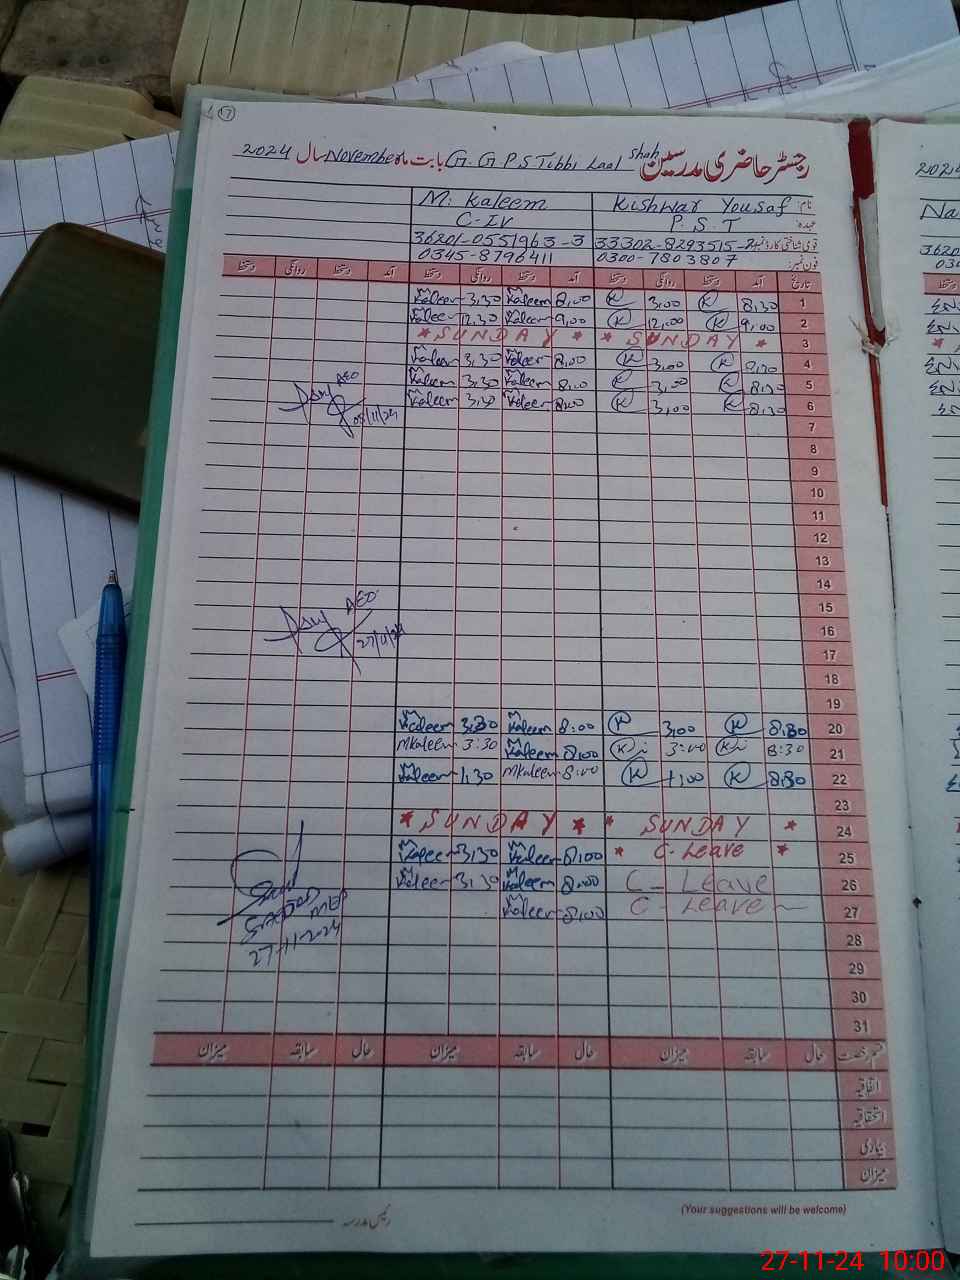 17
رجسٹر حاضری مدرسین G. G P. S Tibbi Laal Shah بابت ماہ November سال 2024
نام: Kishwar Yousaf M: Kaleem
عہدہ: P. S. T C-IV
قومی شناختی کارڈ نمبر: 33302-8293515-2 36201-0551963-3
فون نمبر: 0300-7803807 0345-8796411
تاریخ آمد دستخط روانگی دستخط آمد دستخط روانگی دستخط آمد دستخط روانگی دستخط
1 8,30 K 3,00 K 8,00 Kaleem 3,30 Kaleem
2 9,00 K 12,00 K 9,00 Kaleem 12,30 Kaleem
3 * SUNDAY * * SUNDAY *
4 K 3,00 K 8,00 Kaleem 3,30 Kaleem
5 8,30 K 3,00 K 8,00 Kaleem 3,30 Kaleem
6 8,30 K 3,00 K 8,00 Kaleem 3,30 Kaleem
AEO
05/11/24
7
8
9
10
11
12
13
14
15
AEO
16
27/11/24
17
18
19
20 8,30 K 3,00 K 8:00 Kaleem 3,30 Kaleem
21 8:30 K 3:00 K 8,00 Kaleem 3:30 MKaleem
22 8,30 K 1,00 K 8:00 MKaleem 1,30 Kaleem
23
24 * SUNDAY * * SUNDAY *
25 * C-Leave * 8,00 Kaleem 3,30 Kaleem
26 C- Leave 8,00 Kaleem 3,30 Kaleem
27 C- Leave 8,00 Kaleem
27-11-2024
28
29
30
31
قسم رخصت حال سابقہ میزان حال سابقہ میزان حال سابقہ میزان
اتفاقیہ
استحقاقیہ
بیماری
میزان
(Your suggestions will be welcome)
رئیس مدرسہ
2024
Na
27-11-24 10:00